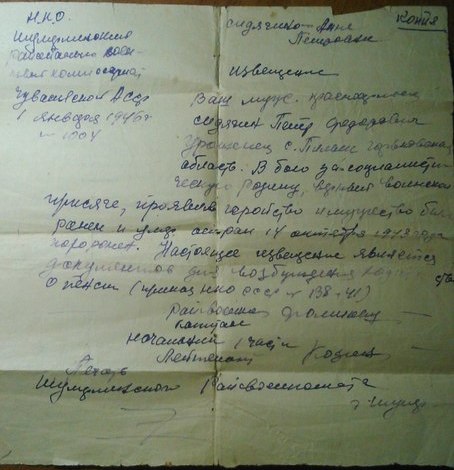 Н.К.О.
Шумерлинский
районный воен-
ный комиссариат
Чувашской АССР
1 января 1946 г
№ 1004
Копия
Сидягино Анне
Петровне
извещение
Ваш муж, красноармеец
Сидягин Петр Федорович
уроженец с.
область. В бою за социалисти-
ческую родину, верный воинской
присяге, проявив геройство и мужество был
ранен и умер от ран 14 октября 194 года
похоронен. Настоящее извещение является
документом для возбуждения ходатайства
О пенсии (приказ НКО СССР № 138-41)
Райвоенком
капитан
Начальник 1 части
Лейтенант
Печать
Шумерлинского Райвоенкомата